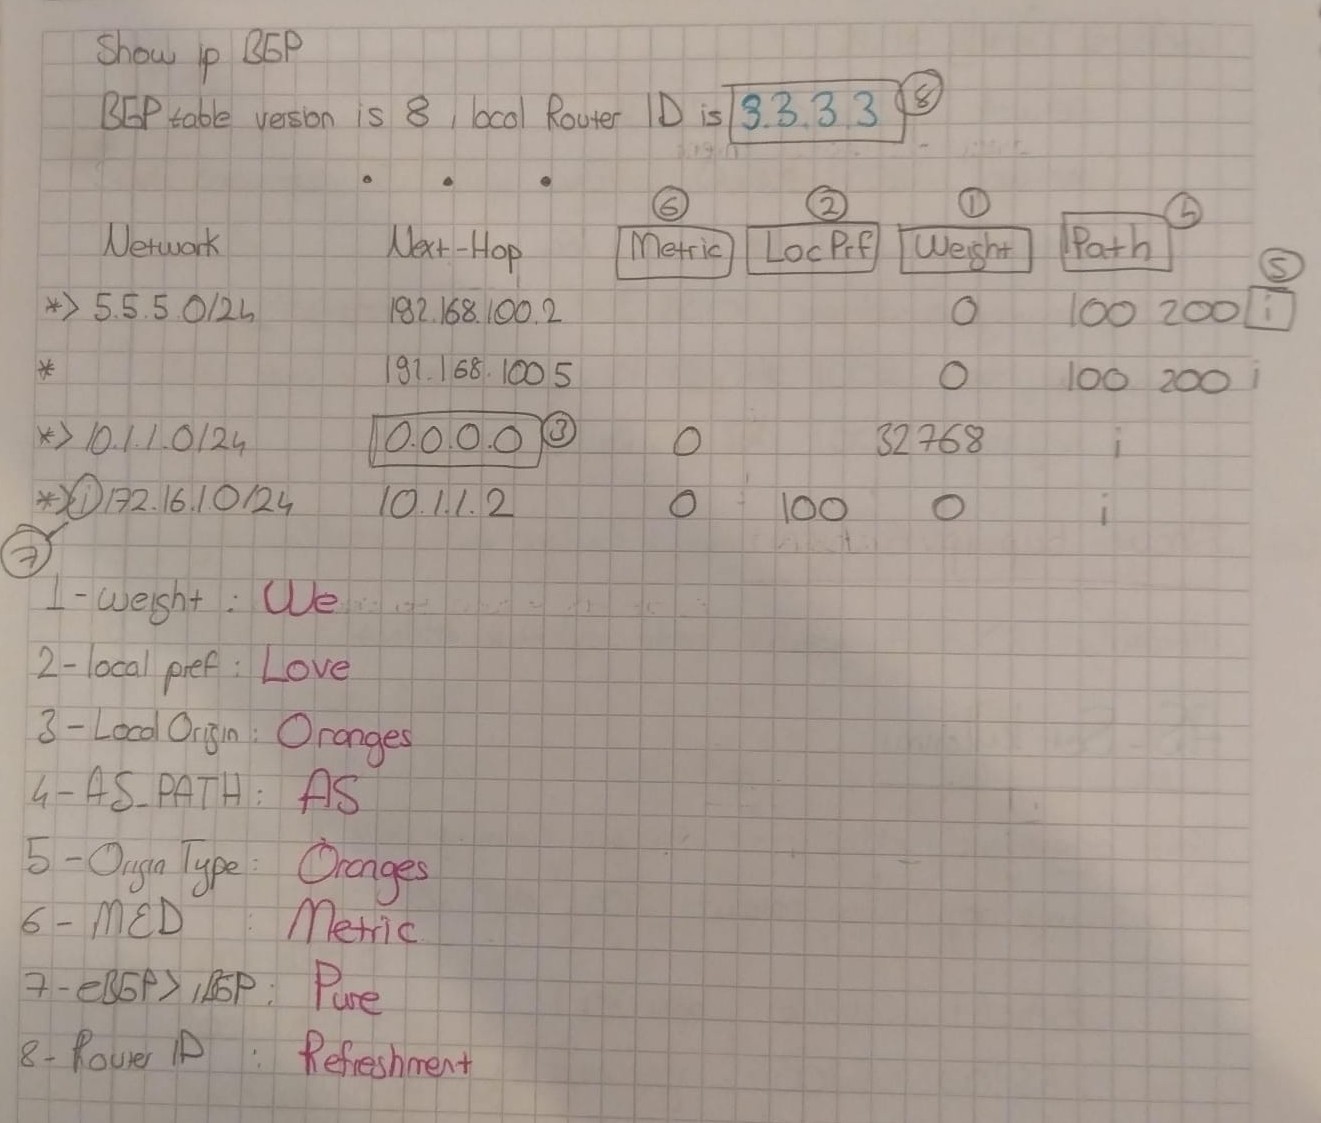 Show ip BGP
BGP table version is 8, local Router ID is 3.3.3.3 8
. . .
6 2 1 4
Network Next-Hop Metric LocPrf Weight Path
5
*> 5.5.5.0/24 192.168.100.2 0 100 200 i
* 191.168.100 5 0 100 200 i
*> 10.1.1.0/24 0.0.0.0 3 0 32768 i
*> i 172.16.1.0/24 10.1.1.2 0 100 0 i
7
1-weight : We
2-local pref : Love
3-Local Origin : Oranges
4-AS_PATH : AS
5-Origin Type : Oranges
6-MED : Metric
7-eBGP> iBGP : Pure
8-Router ID : Refreshment